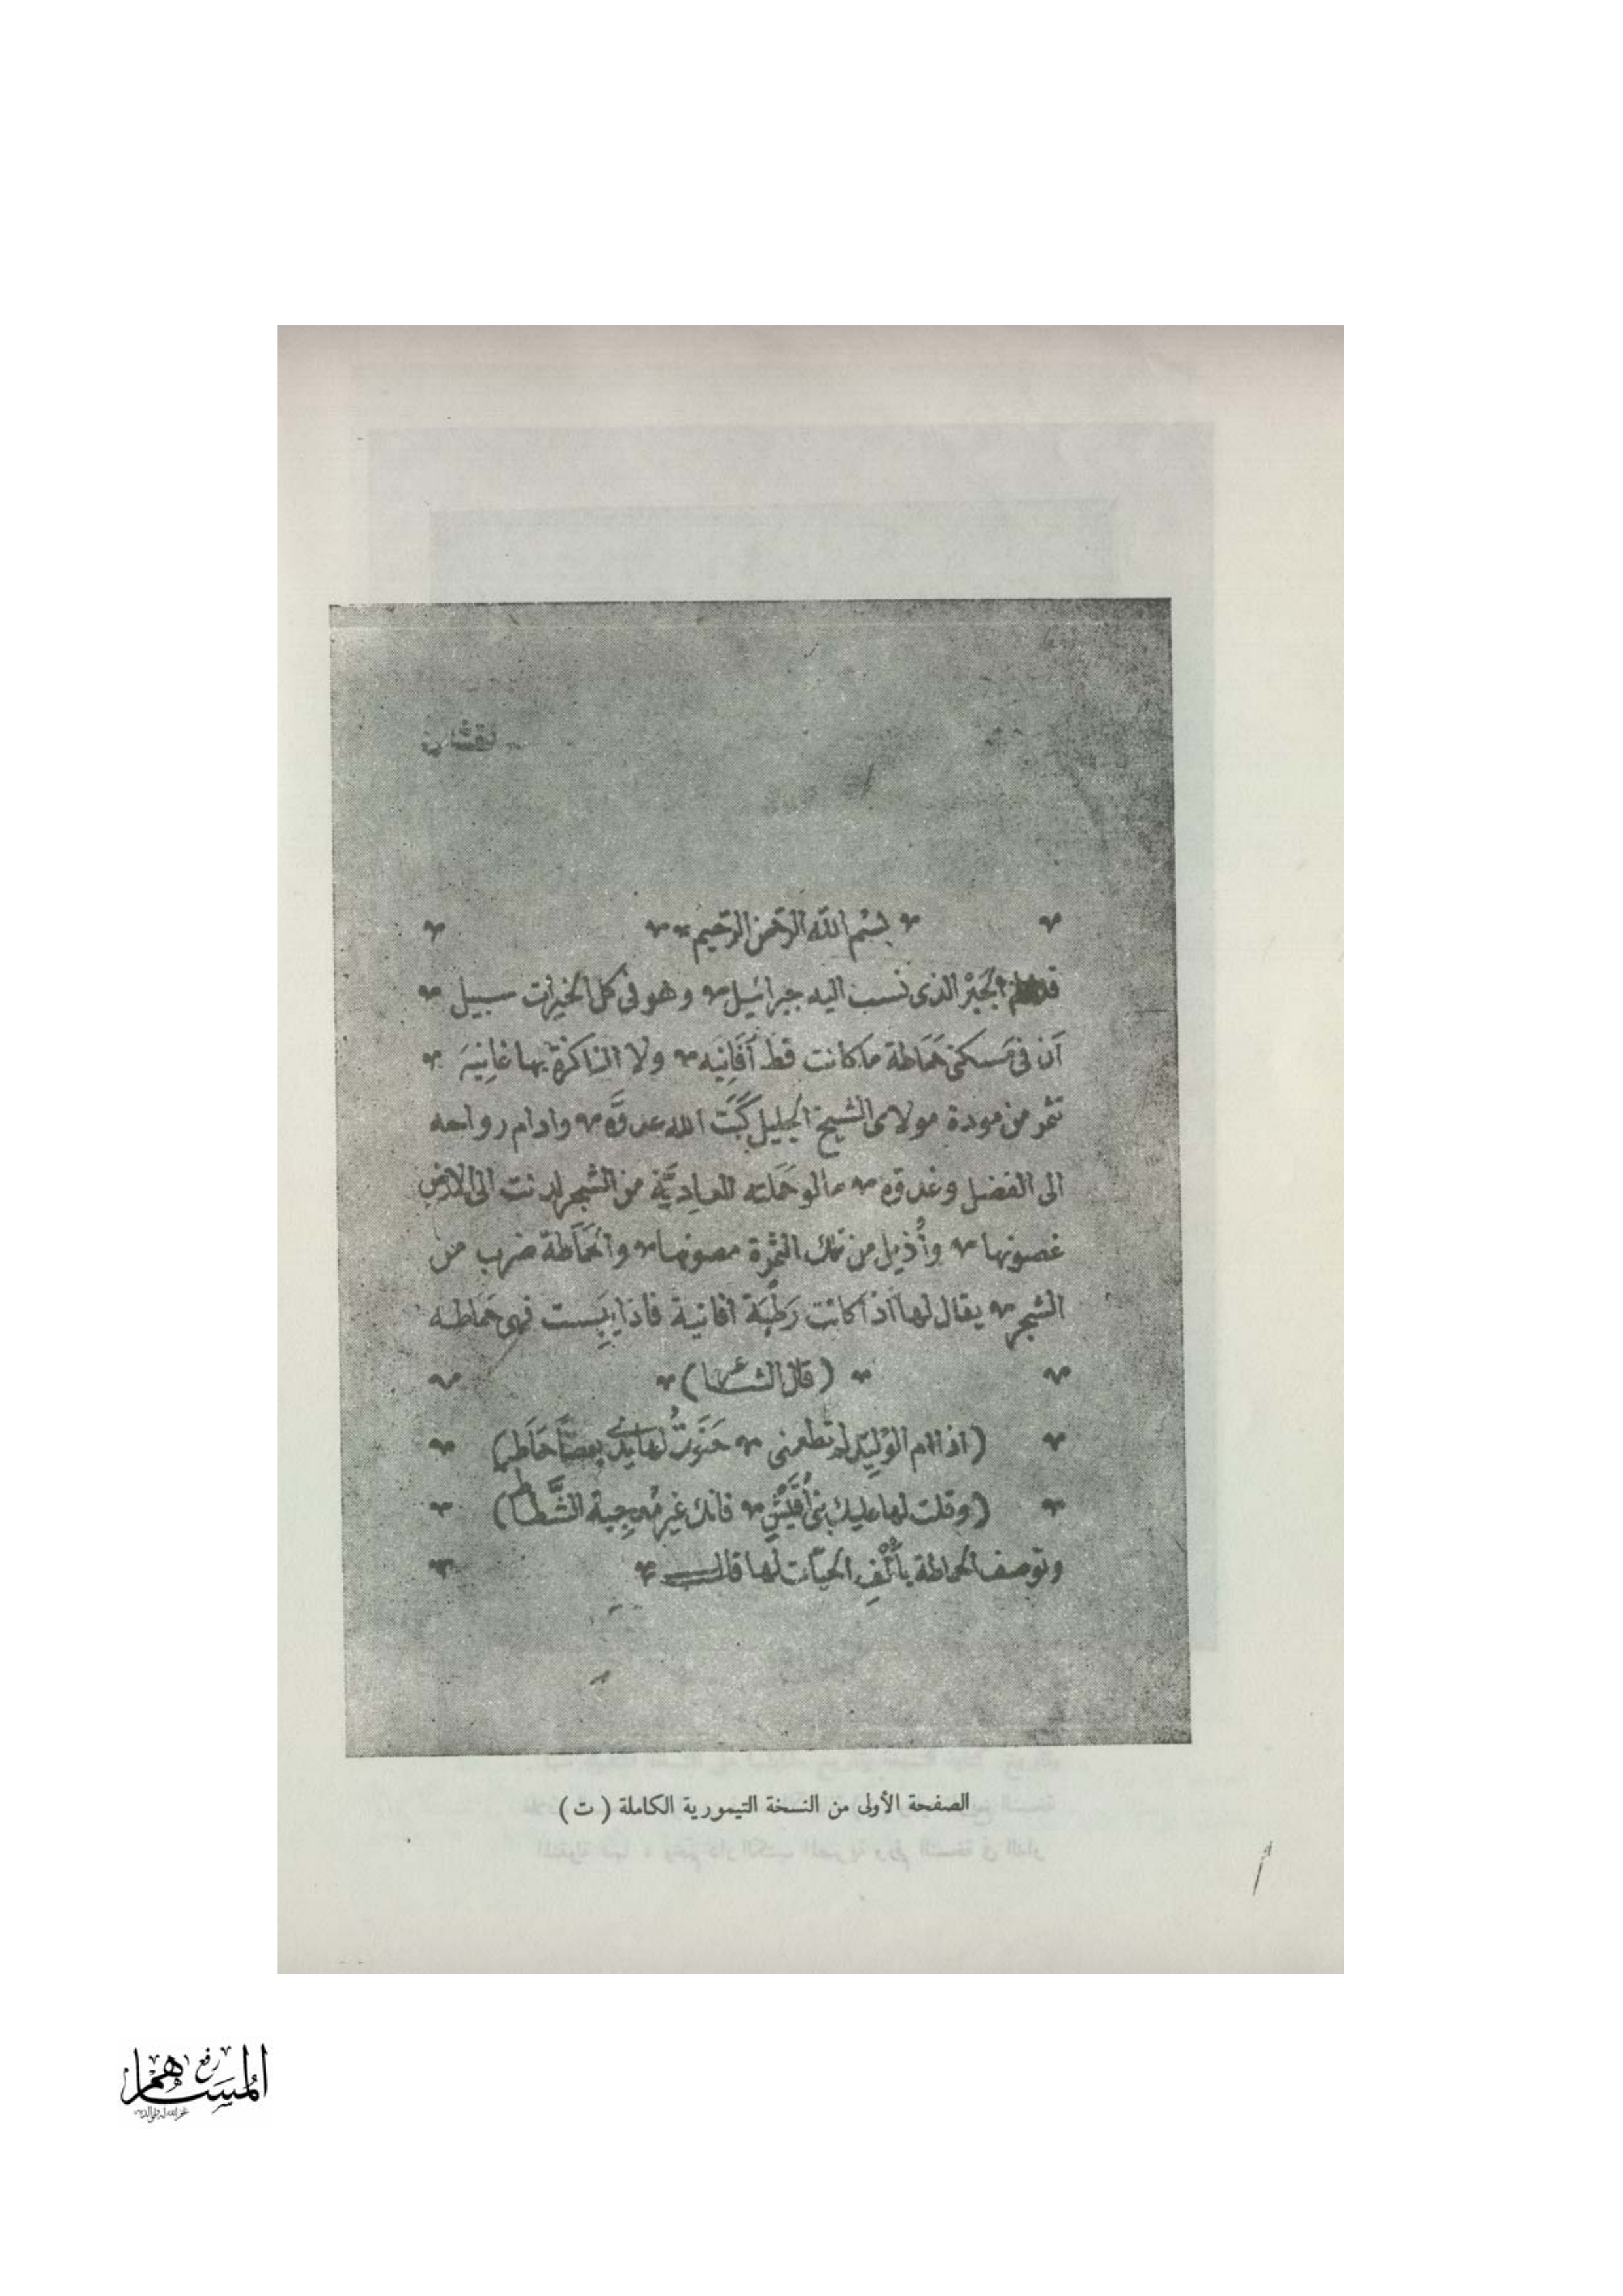 بسم الله الرحمن الرحيم
قد علم الجَبْر الذى نسب اليه جبرائيل وهو فى كل الخيرات سبيل
أن فى مسكنى حَمَاطة ما كانت قط أَفَانِيَه ولا الناكزة بها غانِيَه
تثمر من مودة مولاى الشيخ الجليل كَبَتَ الله عدوَّه وادام رواحه
الى الفضل وغدوّه ما لو حَمَلته العاديَّة من الشجر لدنت الى الارض
غصونها وأُذيل من تلك الثمرة مصونها والحَمَاطة ضرب من
الشجر يقال لها اذا كانت رَطْبَة افانية فاذا يَبِست فهى حَمَاطه
(قال الشاعر)
(اذا ام الوُلَيِّد لم تطعنى حَنَوتُ لها يدى بعصَا حَمَاطِ)
(وقلت لها عليك بنى أُقَيْشٍ فانك غير مُعجِبة الشَّطاطِ)
وتوصف الحماطة بأُلْفِ الحيّات لها قال
الصفحة الأولى من النسخة التيمورية الكاملة ( ت )
رفع
المساهم
غفر الله له ولوالديه